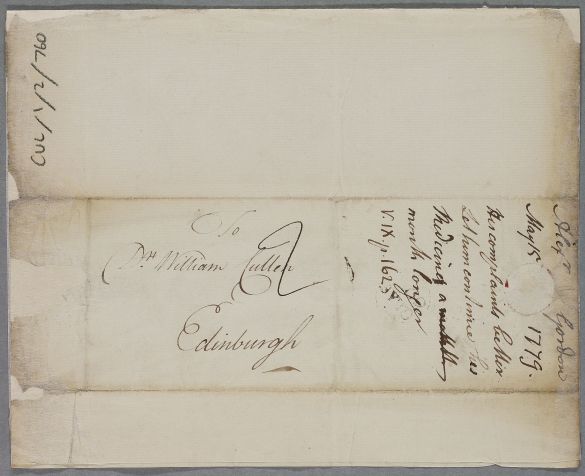 CUL/1/2/760
To
Dr. William Cullen
2
Edinburgh
Alexr Gordon
May 15 1779.
His complaints better
Let him continue his
Medicines a
month longer
V. IX. p. 162.